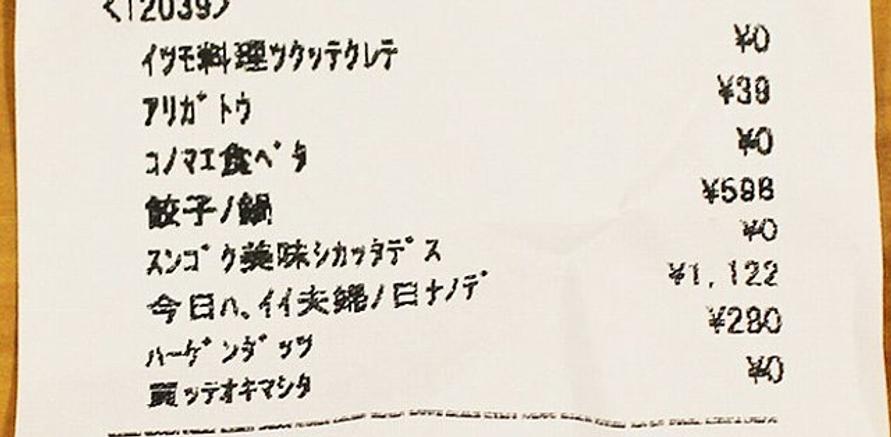 <12039>
イツモ料理ツクッテクレテ ¥0
アリガトウ ¥39
コノマエ食ベタ ¥0
餃子ノ鍋 ¥598
スンゴク美味シカッタデス ¥0
今日ハ、イイ夫婦ノ日ナノデ ¥1,122
ハーゲンダッツ ¥280
買ッテオキマシタ ¥0